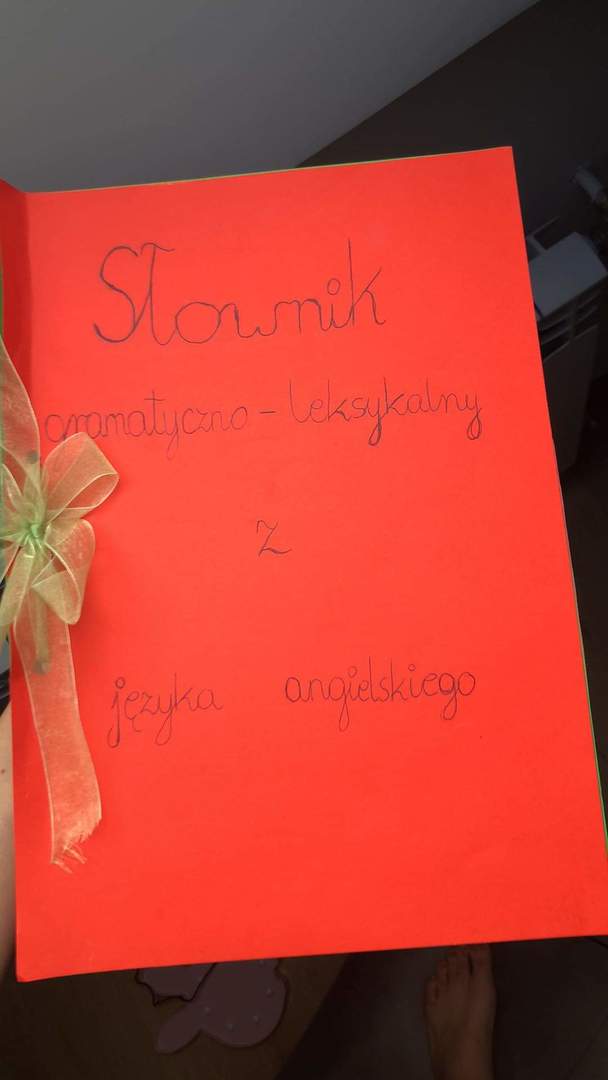 Słownik
gramatyczno - leksykalny
z
języka angielskiego